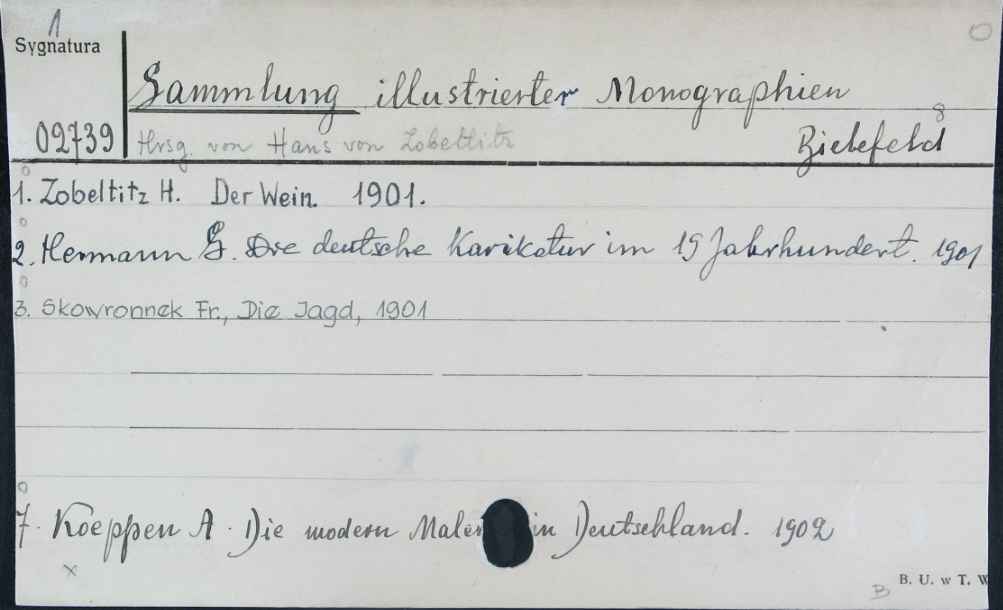 1
Sygnatura
Sammlung illustrierter Monographien
8
02739 Hrsg. von Hans von Zobeltitz Bielefeld
1. Zobeltitz H. Der Wein. 1901.
2. Hermann G. Die deutsche Karikatur im 19 Jahrhundert. 1901
3. Skowronnek Fr., Die Jagd, 1901
7. Koeppen A. Die modern Maler in Deutschland. 1902
x
B. U. w T. W
B